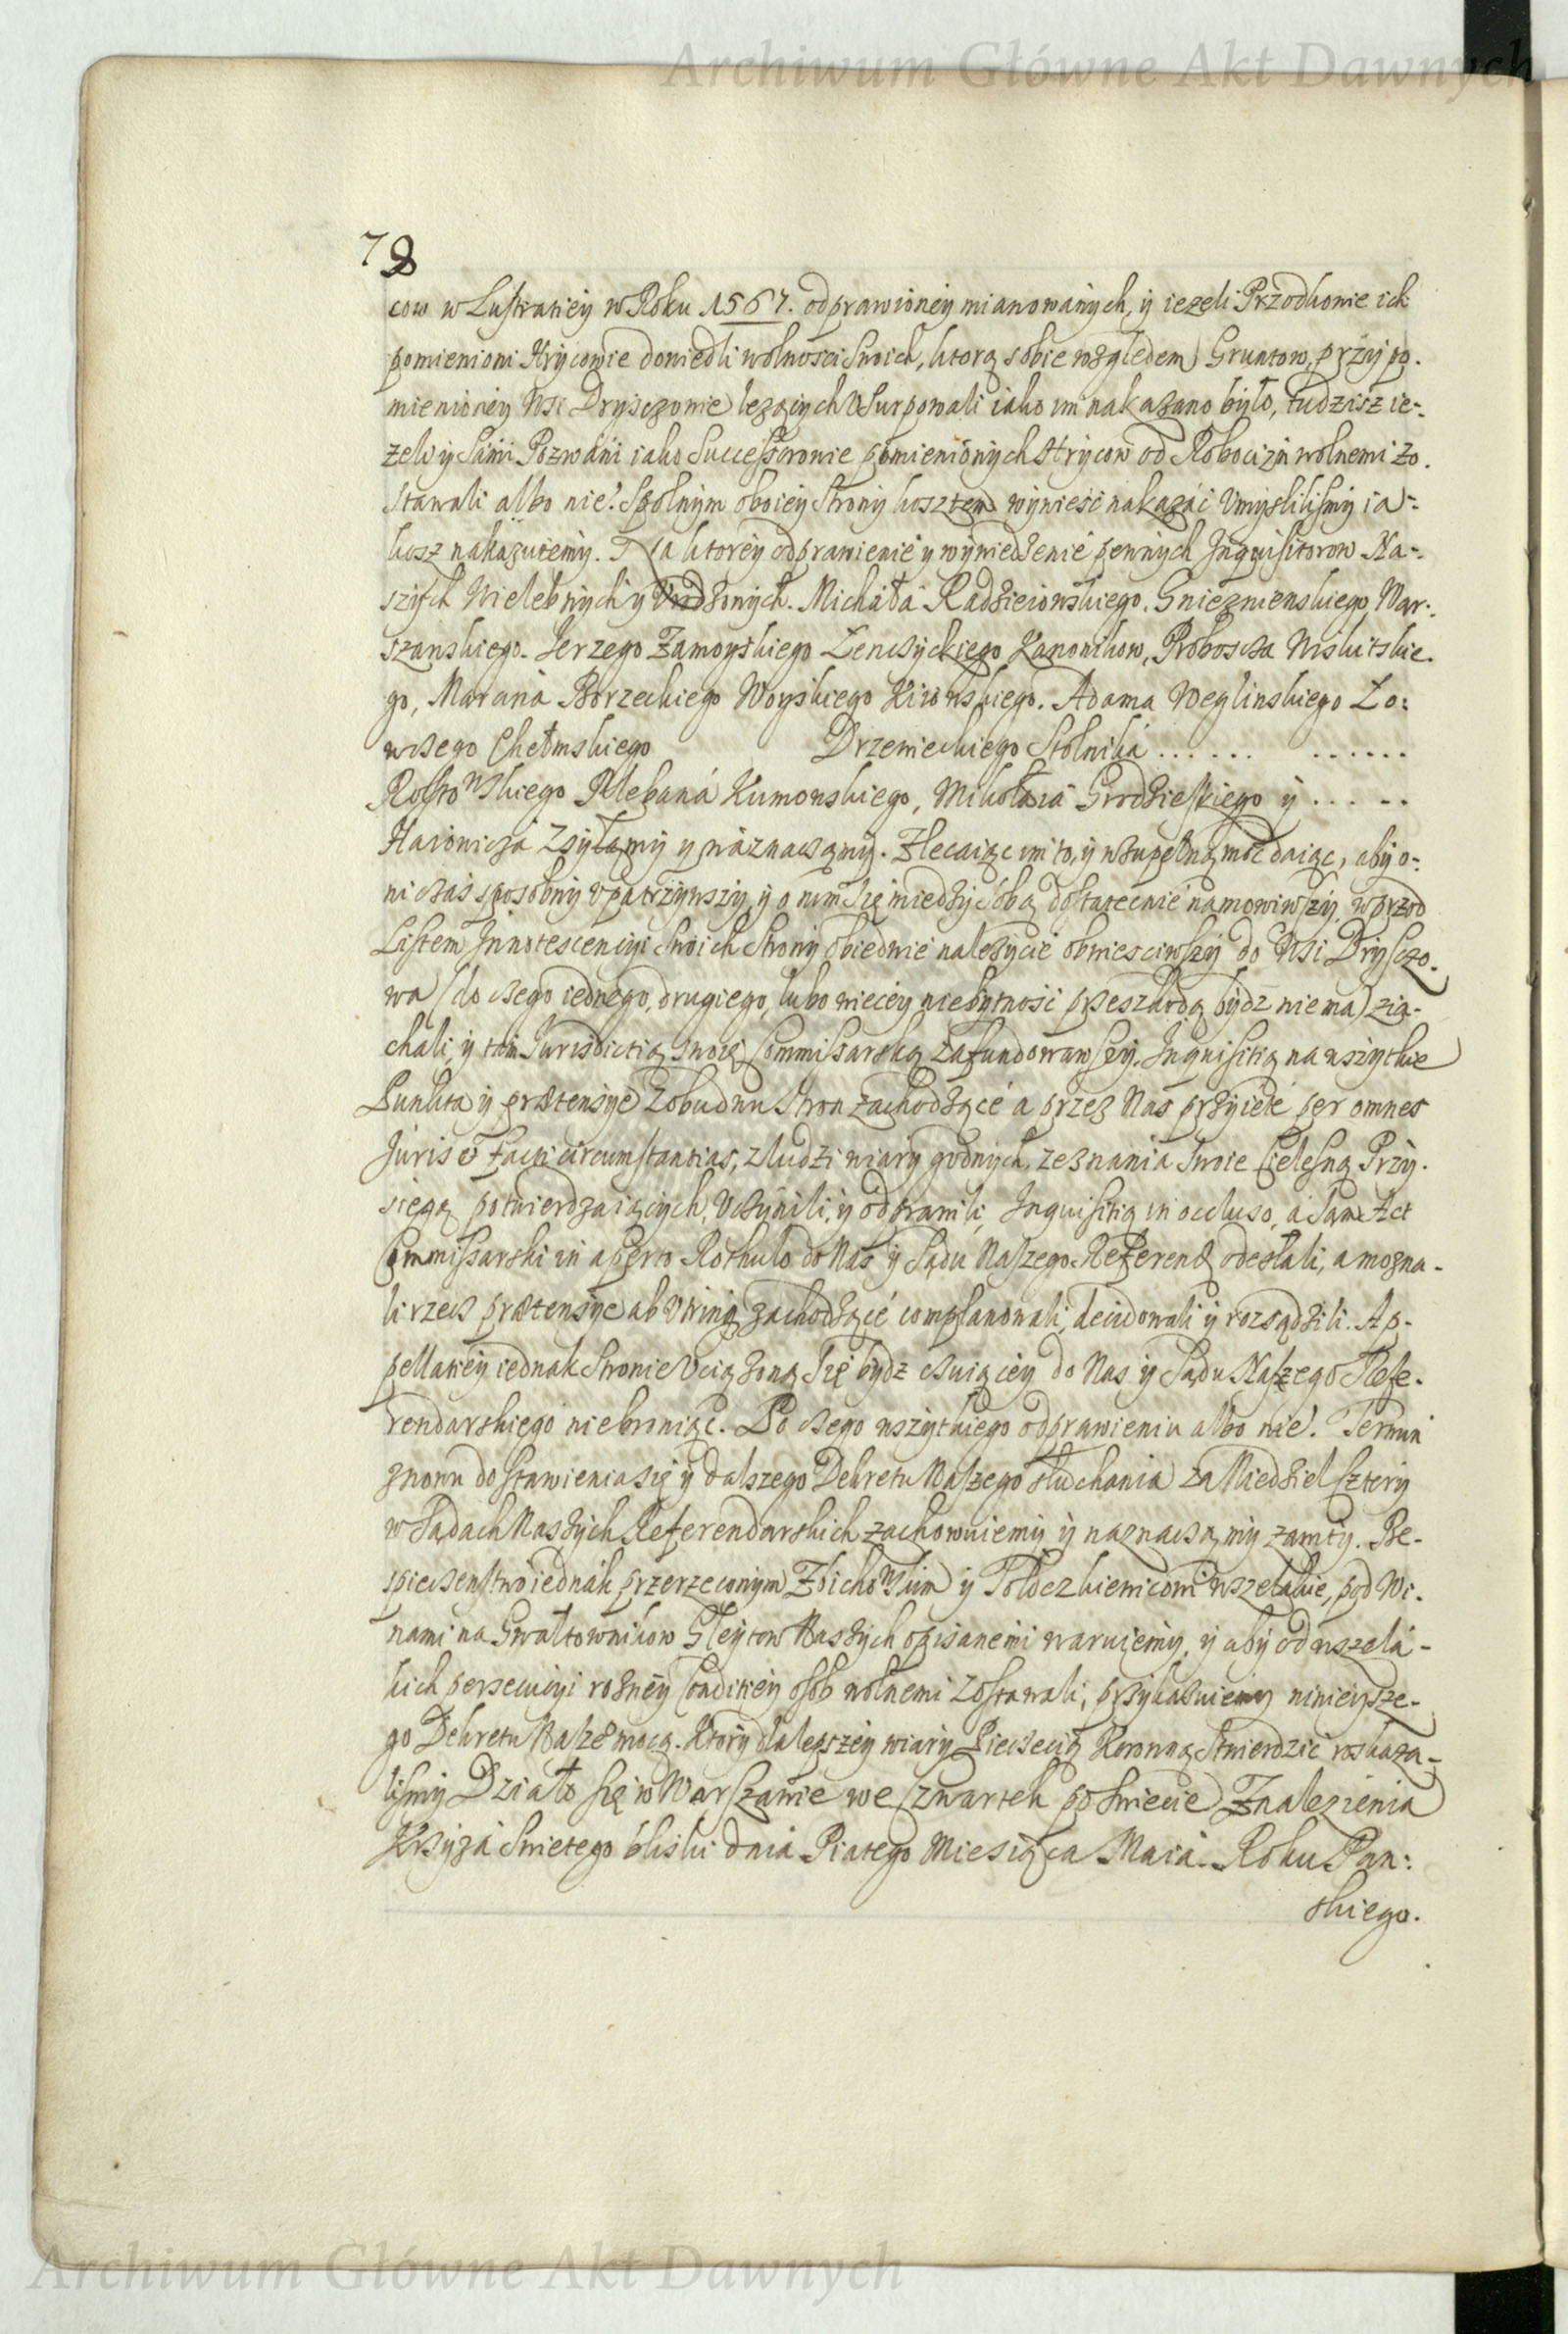 Archiwum Główne Akt Dawnych
78
cow w Lustratiey w Roku 1567. odprawioney mianowanych, y iezeli Przodkowie ich
pomienioni Hrycowie dowiedli wolnosci swoich, ktorą sobie względem Gruntow, przy po-
mienioney Wsi Dryszczowie lezących Vsurpowali iako im nakazano było, tudzisz ie-
zeli y sami Pozwani iako Successorowie pomienionych Hrycow od Robocizn wolnemi zo-
stawali albo nie? Spolnym oboiey Strony kosztem wywiesć nakazać Vmysliliśmy ia-
kosz nakazuiemy. Na ktorey odprawienie y wywiedzenie pewnych Inquisitorow Na-
szych Wielebnych y Vrodzonych. Micháłá Radzieiowskiego, Gnieznienskiego, War-
szawskiego. Jerzego Zamoyskiego Łenczyckiego Kanonikow, Proboscza Wiskitskie-
go, Marcina Borzeckiego Woyskiego Kiiowskiego. Adama Węglinskiego Ło-
wczego Chełmskiego Drzewieckiego Stolniká ...... ......
Rosto Wskiego Plebaná Kumowskiego, Mikołaiá Grodzieckiego y .....
Haiewicza Zsyłamy y náznaczamy. Zlecaiąc im to, y wzupełną moc daiąc, aby o-
ni czas sposobny vpatrzywszy, y o nim się między sobą dostatecznie namowiwszy, wprzod
Listem Innotescencyi swoich Strony Obiedwie należycie obwiesciwszy do Wsi Dryszczo-
wa (do czego iednego, drugiego, lubo więcey niebytność przeszkodą bydz nie ma) zia-
chali, y tám Jurisdictią swoię Commissarską zafundowawszy, Inquisitią na wszytkie
Punkta y prætensye Zobudwu stron zachodzące a przez Nas przyięte per omnes
Juris et Facti circumstantias, z ludzi wiary godnych, zeznania swoie Cielesną Przy-
sięgą potwierdzaiących, Vczynili, y odprawili, Inquisitią in occluso, á sam Act
Commissarski in aperto Rothulo do Nas y Sądu Naszego Referend. odesłali, a mozna-
li rzecz prætensye ab Vtrinq zachodzące complanowali, decidowali y rozsądzili. Ap-
pellatiey iednak Stronie Vciązoną się bydz czuiącey do Nas y Sądu Naszego Refe-
rendarskiego niebroniąc. Po czego wszytkiego odprawieniu albo nie. Termin
znowu do stawienia się y dalszego Dekretu Naszego słuchania za Niedziel Cztery
w Sądach Naszych Referendarskich zachowuiemy y naznaczamy zawity. Be-
spieczenstwo iednák przerzeczonym Zbicho Wskim y Połoczkiewiczom wszelakie, pod Wi-
nami na Gwałtownikow Gleytow Naszych opisanemi waruiemy, y aby od wszela-
kich persecuiyi rozney Conditiey osob wolnemi zostawali, przykazuiemy ninieysze-
go Dekretu Naszeo mocą. Ktory dla lepszey wiary Pieczęcią Koronną stwierdzić roskaza-
lismy Działo się w Warszawie we Czwartek po Swięcie Znalezienia
Krzyżá Swietego bliski dnia Piątego Miesiąca Maia. Roku Pan-
skiego.
Archiwum Główne Akt Dawnych